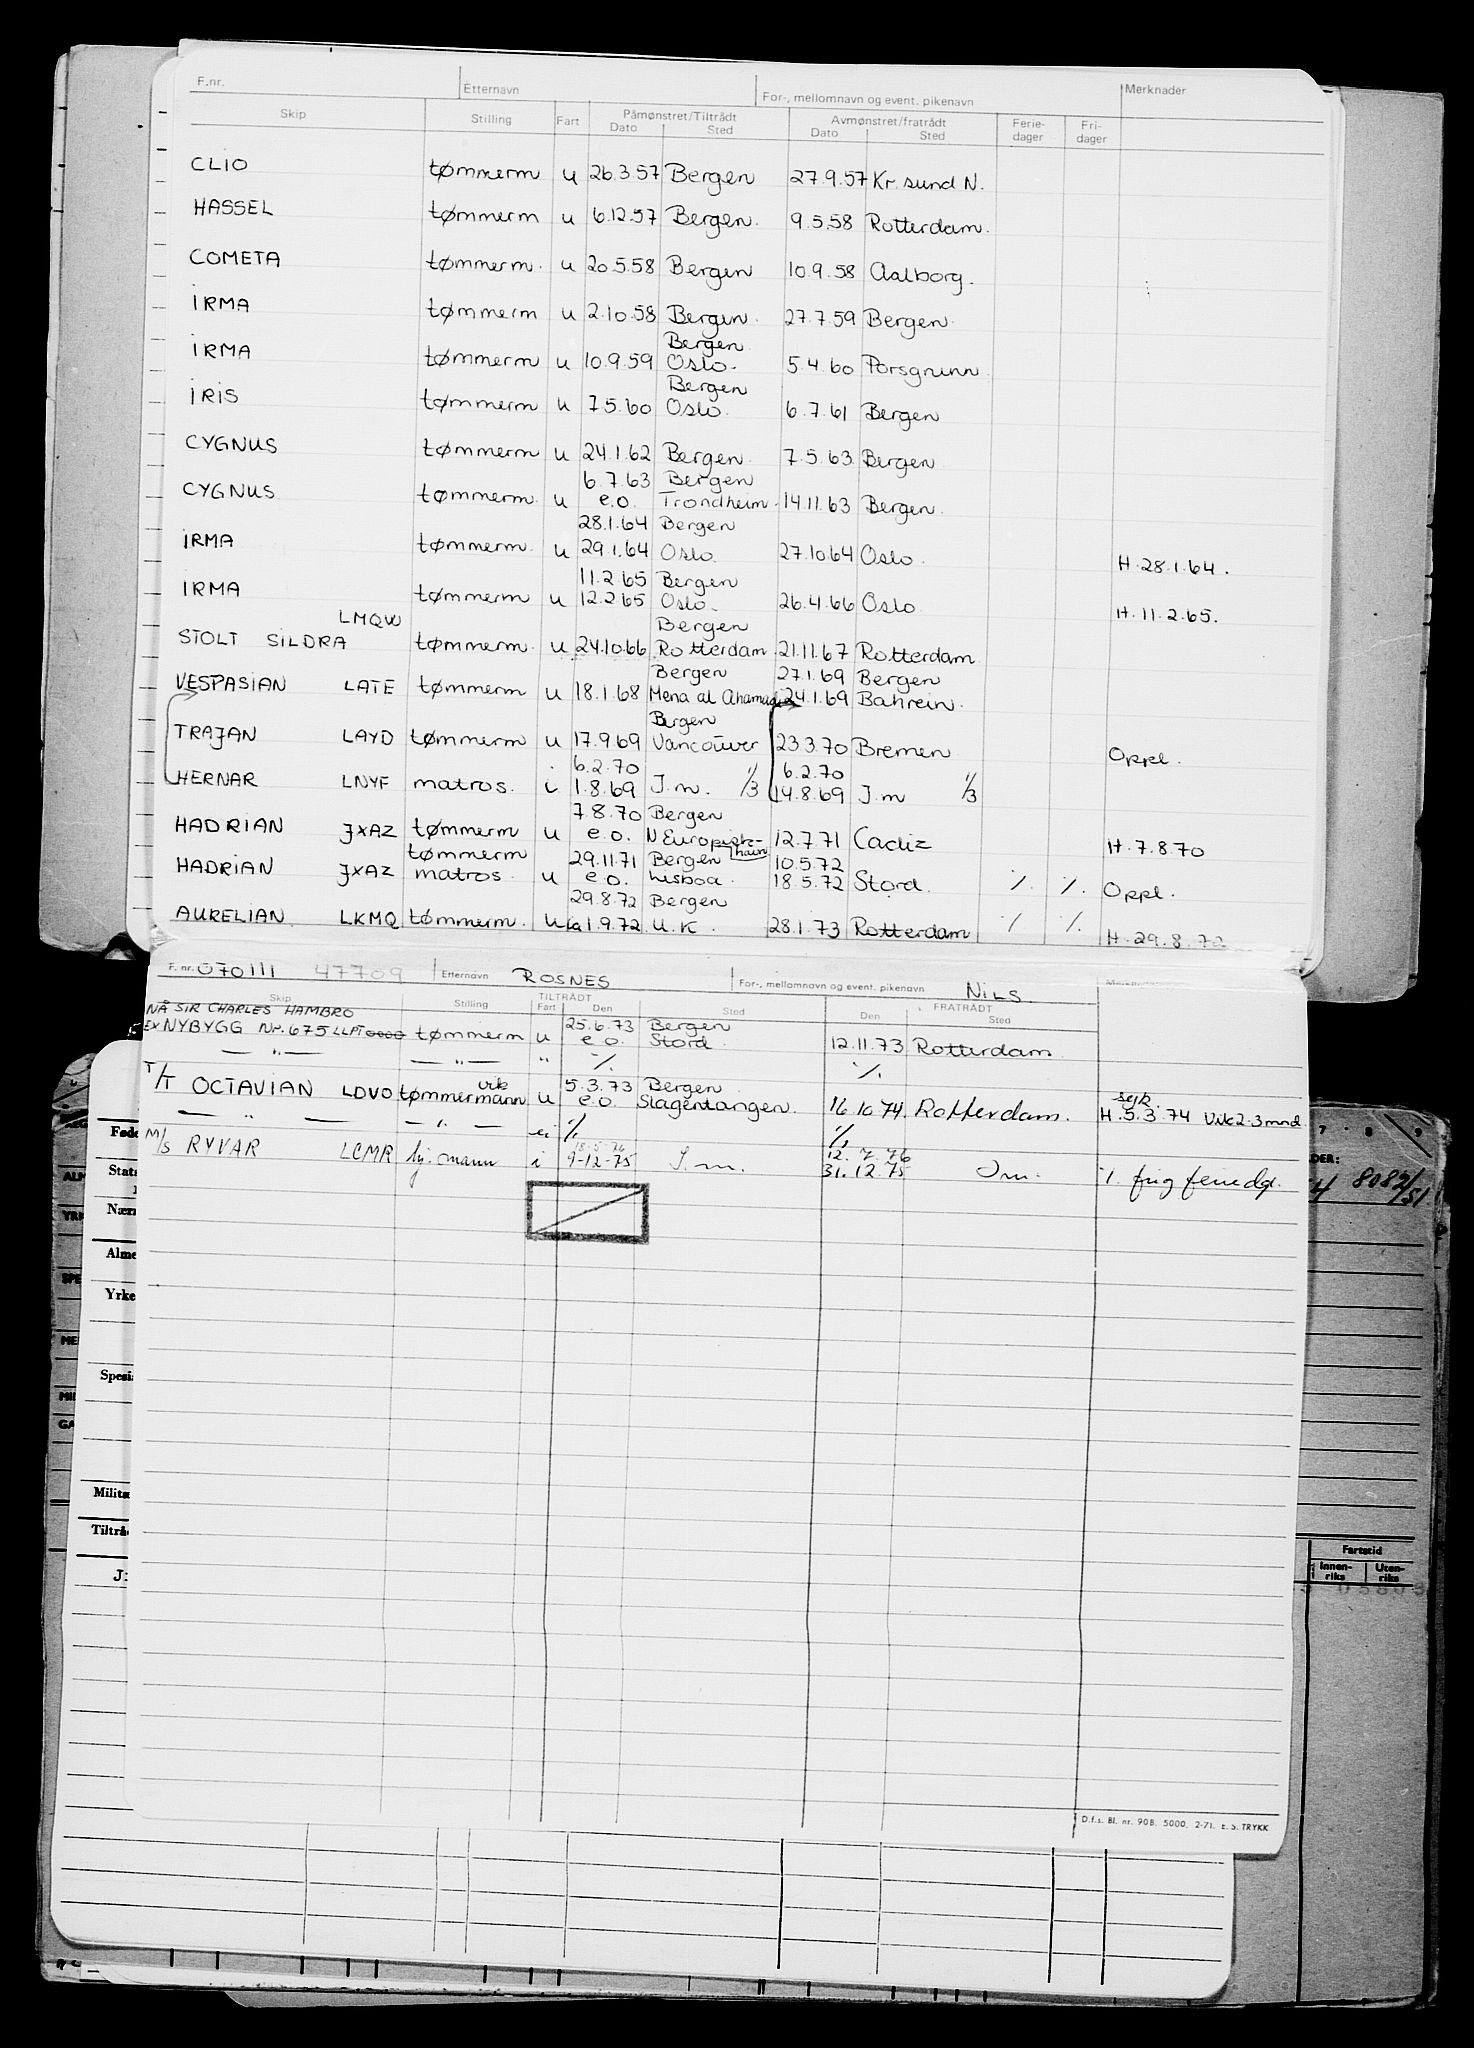 F.nr. Etternavn For-, mellomnavn og event. pikenavn Merknader
Skip Stilling Fart Påmønstret/Tiltrådt Avmønstret/fratrådt Ferie-dager Fri-dager
Dato Sted Dato Sted
CLIO tømmerm u 26.3.57 Bergen 27.9.57 Kr. sund N.
HASSEL tømmerm u 6.12.57 Bergen. 9.5.58 Rotterdam.
COMETA tømmerm. u 20.5.58 Bergen 10.9.58 Aalborg.
IRMA tømmerm u 2.10.58 Bergen. 27.7.59 Bergen.
Bergen
IRMA tømmerm u 10.9.59 Oslo. 5.4.60 Porsgrunn
Bergen
IRIS tømmerm u 7.5.60 Oslo. 6.7.61 Bergen
CYGNUS tømmerm u 24.1.62 Bergen. 7.5.63 Bergen
6.7.63 Bergen
CYGNUS tømmerm. u e.o. Trondheim. 14.11.63 Bergen.
28.1.64 Bergen
IRMA tømmerm. u 29.1.64 Oslo. 27.10.64 Oslo. H. 28.1.64.
11.2.65 Bergen
IRMA tømmerm u 12.2.65 Oslo. 26.4.66 Oslo H. 11.2.65.
LMQW Bergen
STOLT SILDRA tømmerm. u 24.10.66 Rotterdam. 21.11.67 Rotterdam
Bergen 27.1.69 Bergen
VESPASIAN LATE tømmerm u 18.1.68 Mena al Ahamadia 24.1.69 Bahrein.
Bergen
TRAJAN LAYD tømmerm u 17.9.69 Vancouver 23.3.70 Bremen Oppl.
6.2.70 " 6.2.70 "
HERNAR LNYF matros. i 1.8.69 J.m. /3 14.8.69 J.m /3
7.8.70 Bergen
HADRIAN JXAZ tømmerm u e.o. N Europeisk havn 12.7.71 Cadiz H. 7.8.70
tømmerm 29.11.71 Bergen 10.5.72
HADRIAN JXAZ matros. u e.o. Lisboa. 18.5.72 Stord. ./. ./. Oppl.
29.8.72 Bergen
AURELIAN LKMQ tømmerm. u ca 1.9.72 U.K. 28.1.73 Rotterdam ./. ./. H. 29.8.72
F. nr. 070111 47709 Etternavn ROSNES For-, mellomnavn og event. pikenavn NILS
Skip Stilling TILTRÅDT FRATRÅDT
Fart Den Sted Den Sted
NÅ SIR CHARLES HAMBRO 25.6.73 Bergen
EX NYBYGG Nr. 675 LLPT tømmerm u e.o. Stord. 12.11.73 Rotterdam.
— " — — " — " ./. ./.
vik 5.3.73 Bergen sejk.
T/T OCTAVIAN LDVO tømmermann u e.o. Slagentangen. 16.10.74. Rotterdam. H. 5.3.74 Vik 2-3 mnd.
— " — — " — ei ./. ./.
18.5.76 12.7.76
M/S RYVAR LCMR hj.mann i 9-12-75 J.m. 31.12.75 Jm. ./. frig feriedg.
D.f.s. Bl. nr. 90B. 5000. 2-71. E.S. TRYKK
Føde
Stats
Nærm
Alme
Yrke
Spesia
Milita
Tiltrå
J:
7 8 9
DER:
8082/51
Fartstid
Innen-riks Uten-riks